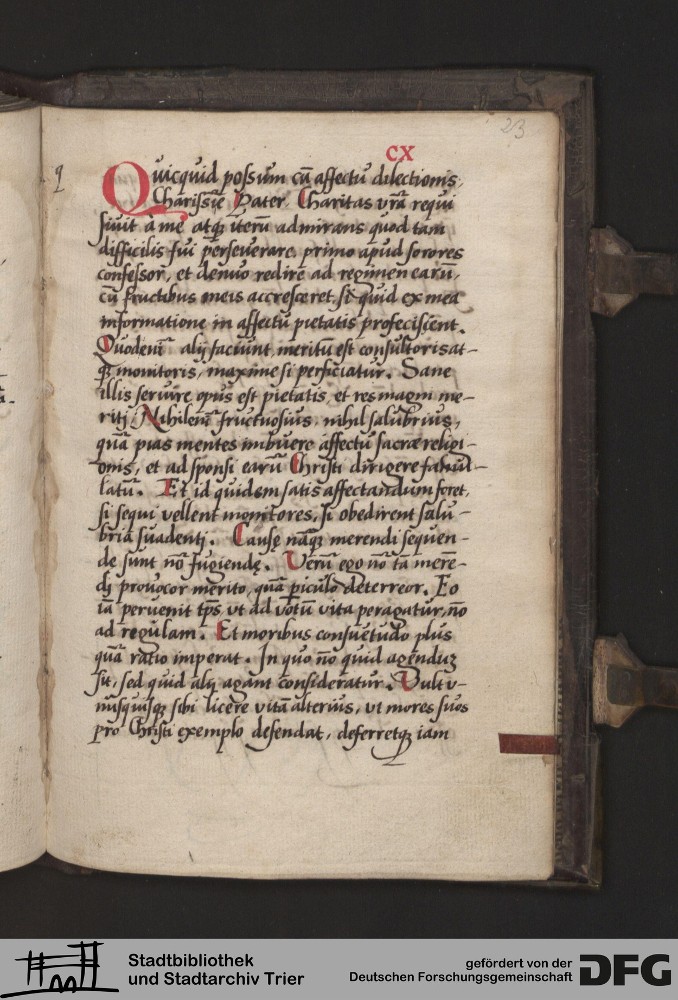 23
CX
q
Quicquid possum cū affectu dilectionis,
Charissīe Pater. Charitas vrā requi
siuit a me atqʒ iterū admirans quod tam
difficilis fui perseuerare, primo apud sorores
confessor, et denuo redire ad regimen earū,
cū fructibus meis accresceret, si quid ex mea
informatione in affectū pietatis profecissent.
Quod enī alij faciunt meritū est consultoris at-
qʒ monitoris, maxime si perficiatur. Sane
illis seruire opus est pietatis, et res magni me-
riti. Nihil enī fructuosius, nihil salubrius,
quā pias mentes imbuere affectu sacrae religi-
onis, et ad sponsi earū Christi dirigere famu-
latū. Et id quidem satis affectandum foret,
si sequi vellent monitores, si obedirent salu-
bria suadenti. Causę nāqʒ merendi sequen-
de sunt nō fugiendę. Verū ego nō tā meren-
di prouocor merito, quā piculo deterreor. Eo
iā peruenit tps, vt ad votū vita peragatur, nō
ad regulam. Et moribus consuetudo plus
quā ratio imperat. In quo nō quid agendū
sit, sed quid alij agant consideratur. Vult v-
nusquisqʒ sibi licere vitā alterius, vt mores suos
pro Christi exemplo defendat, deferretqʒ iam
Stadtbibliothek
und Stadtarchiv Trier
gefördert von der
Deutschen Forschungsgemeinschaft
DFG